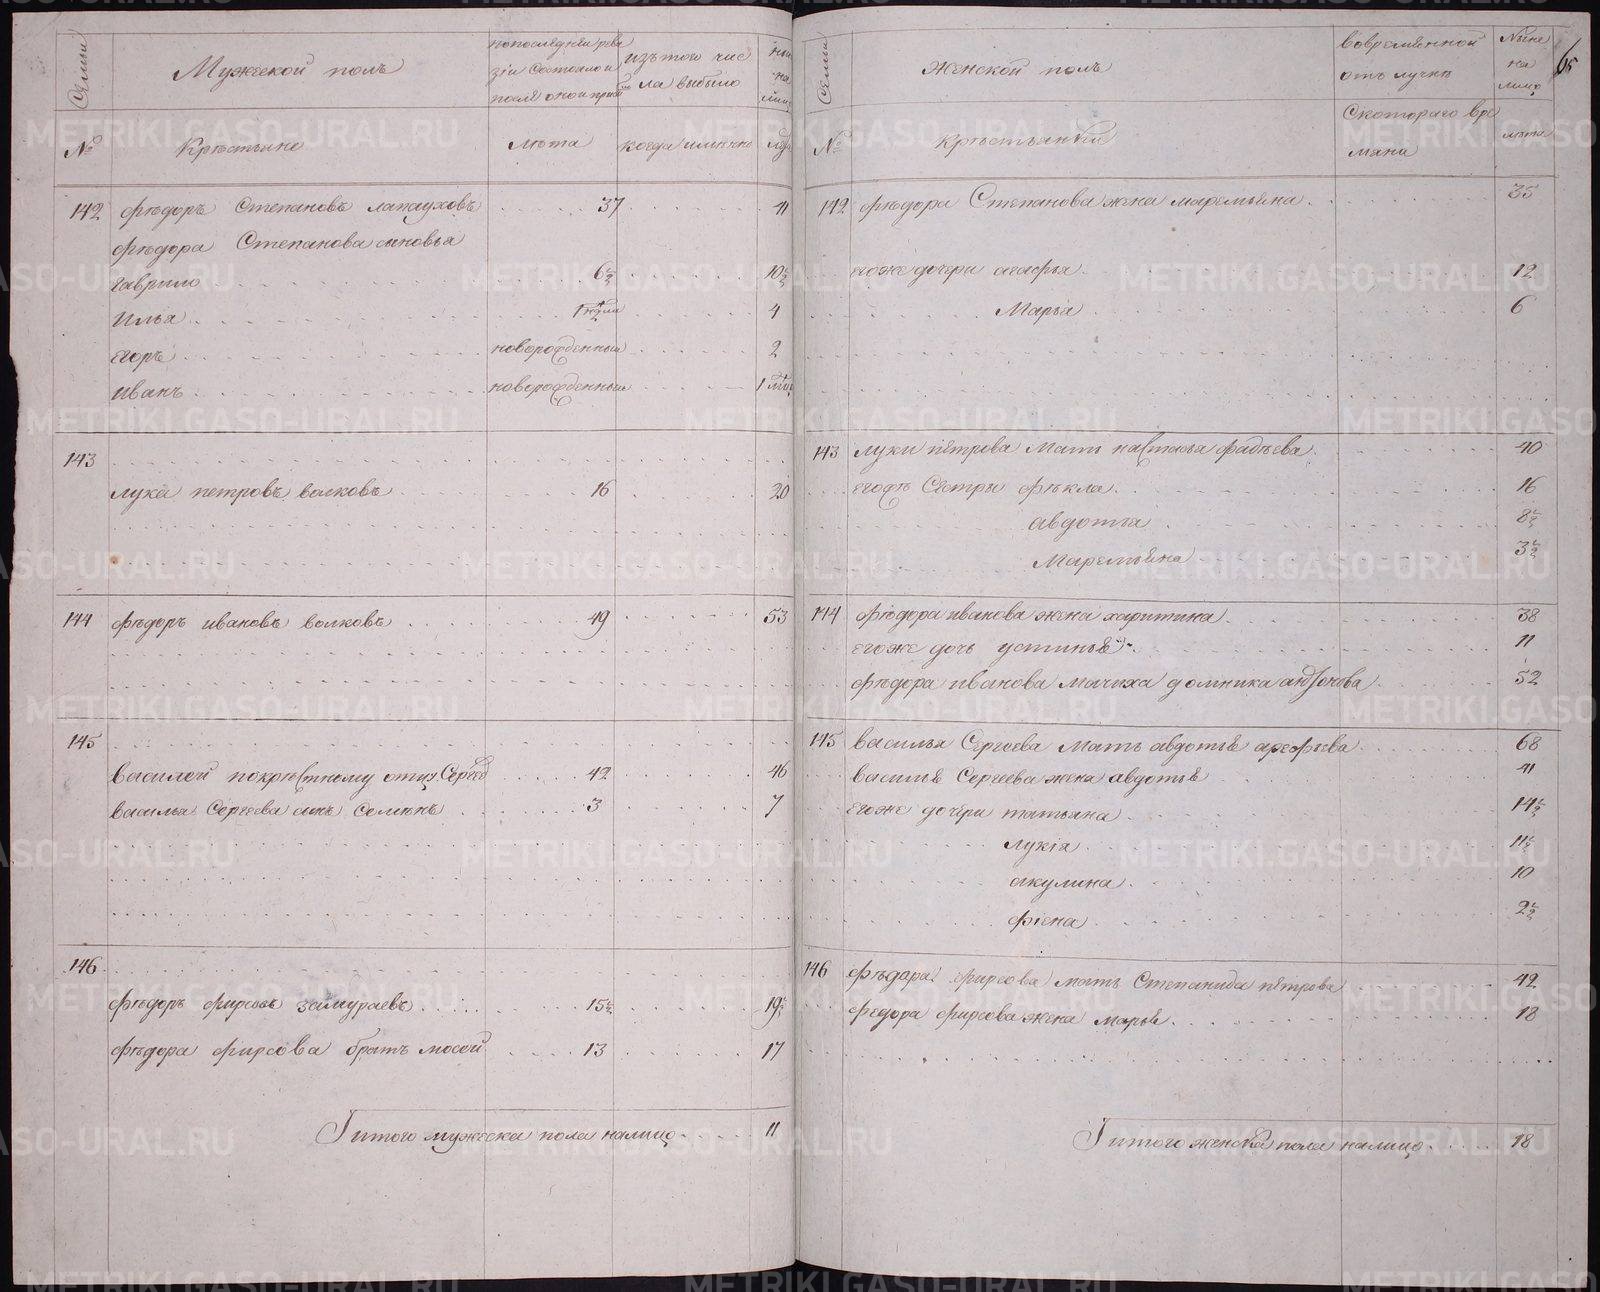 Семьи
Мужеской полъ
попоследнѣй реви
зіи Состояло и
после оной при
изъ того чис
ла выбыло
ны
на
лицо
№
Крестьяне
Лѣта
когда имянно
лѣ
142 Фѣдоръ Степановъ лапауховъ 37 41
Фѣдора Степанова сыновья
Гаврило 6½ 10½
Илья 4
Егоръ новорожденный 2
Иванъ новорожденный 1
143
лука петровъ волковъ 16 20
144 Фѣдоръ ивановъ волковъ 49 53
145
василей покрестному отцу Сергеев 42 46
василья Сергеева сынъ Семенъ 3 7
146
Фѣдоръ фирсовъ замураевъ 15½ 19½
Фѣдора Фирсова братъ мосей 13 17
Итого мужеска пола налицо 11
Семьи
Женской полъ
вовременной
отълучке
Ныне
на
лицо
65
№
Крѣстьянки
Скотораго вре
мяни
лѣта
142 Фѣдора Степанова жена маремьяна 35
егоже дочери агафья 12
Марья 6
143 луки петрова Мать настасья фадѣева 40
егожъ Сестры фѣкла 16
авдотья 8½
Маремьяна 3½
144 Фѣдора иванова жена харитина 38
егоже дочь устинья 11
Фѣдора иванова Мачиха домника андронова 52
145 василья Сергеева Мать авдотья арефьева 68
василья Сергеева жена авдотья 41
егоже дочери татьяна 14½
лукія 11½
акулина 10
фіена 2½
146 Фѣдара фирсова мать Степанида пѣтрова 42
Федора фирсова жена марья 18
Итого женска пола налицо 18
METRIKI.GASO-URAL.RU